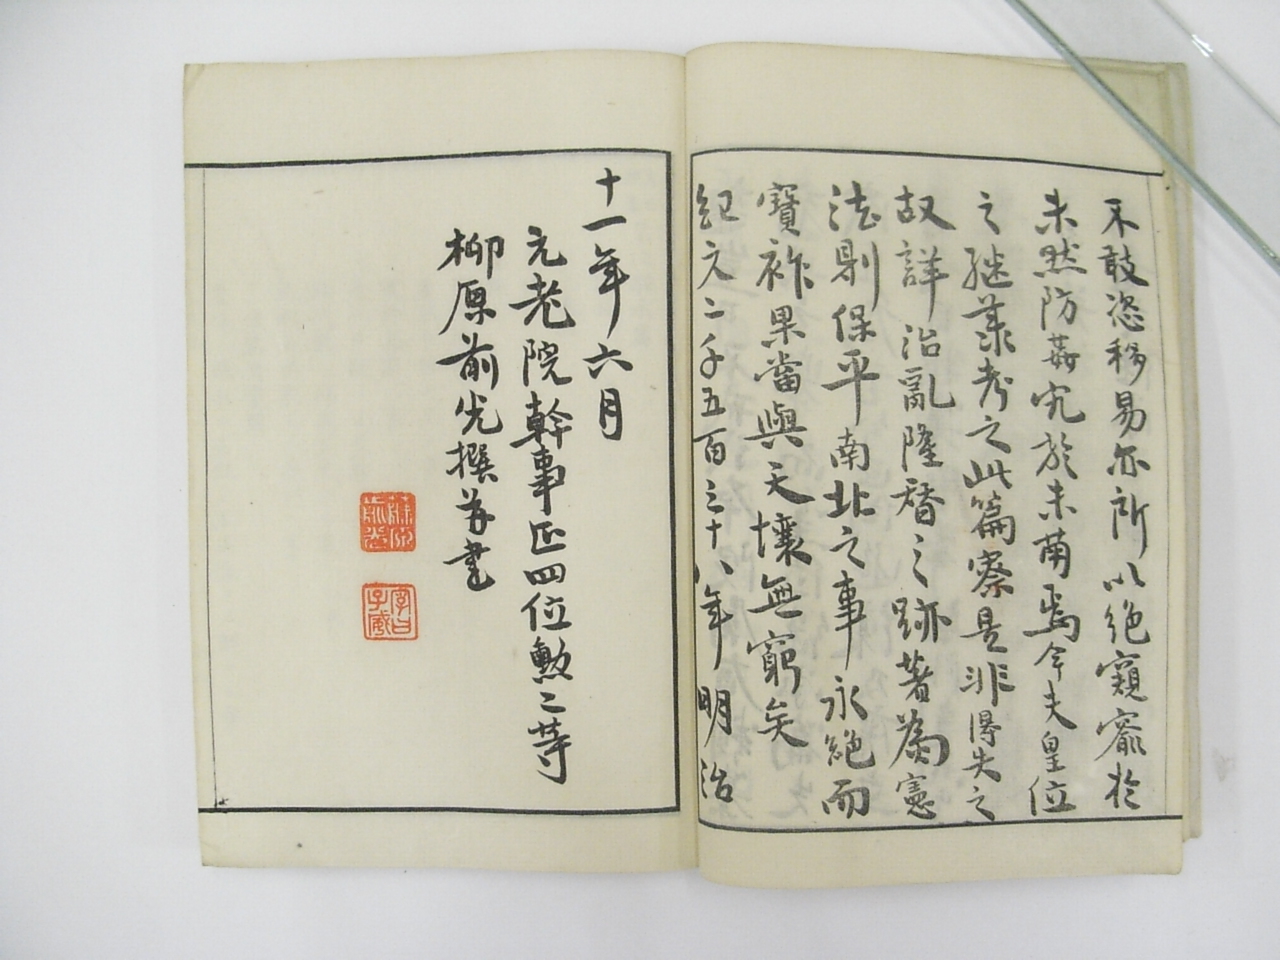 不敢恣移易亦所以絶窺窬於
未然防姦宄於未萌焉今夫皇位
之継業考之此篇察是非得失之
故詳治亂隆替之跡著為憲
法則保平南北之事永絶而
寶祚果當與天壤無窮矣
紀元二千五百三十八年明治
十一年六月
元老院幹事正四位勲二等
柳原前光撰并書
藤原前光
字子威